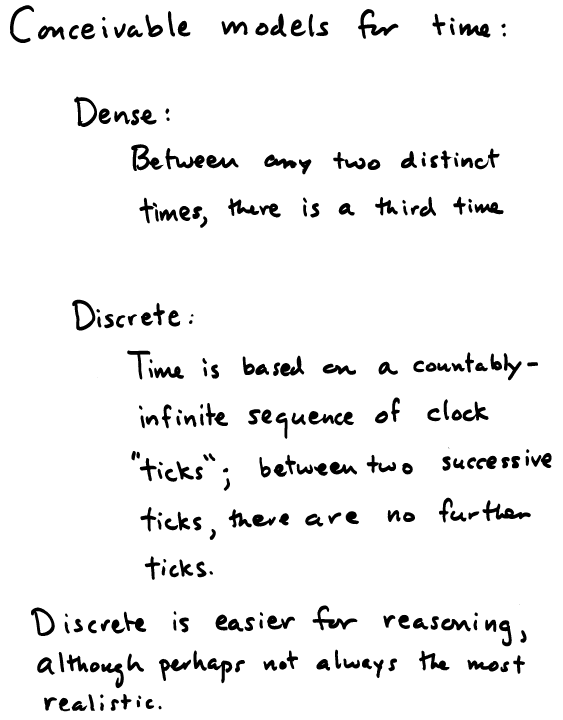 Conceivable models for time:
Dense:
Between any two distinct
times, there is a third time
Discrete:
Time is based on a countably-
infinite sequence of clock
"ticks"; between two successive
ticks, there are no further
ticks.
Discrete is easier for reasoning,
although perhaps not always the most
realistic.